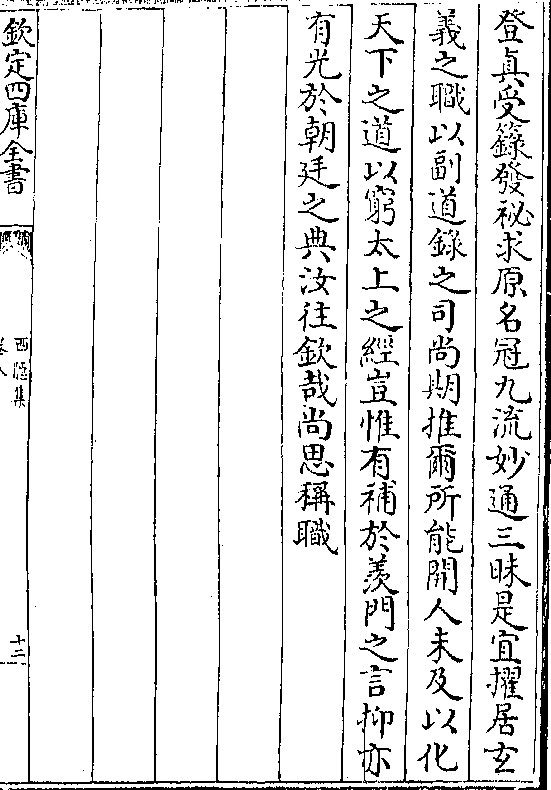 登真受籙發祕求原名冠九流妙通三昧是宜擢居玄
義之職以副道錄之司尚期推爾所能開人未及以化
天下之道以窮太上之經豈惟有補於羨門之言抑亦
有光於朝廷之典汝往欽哉尚思稱職
欽定四庫全書
西隱集
卷八
十二